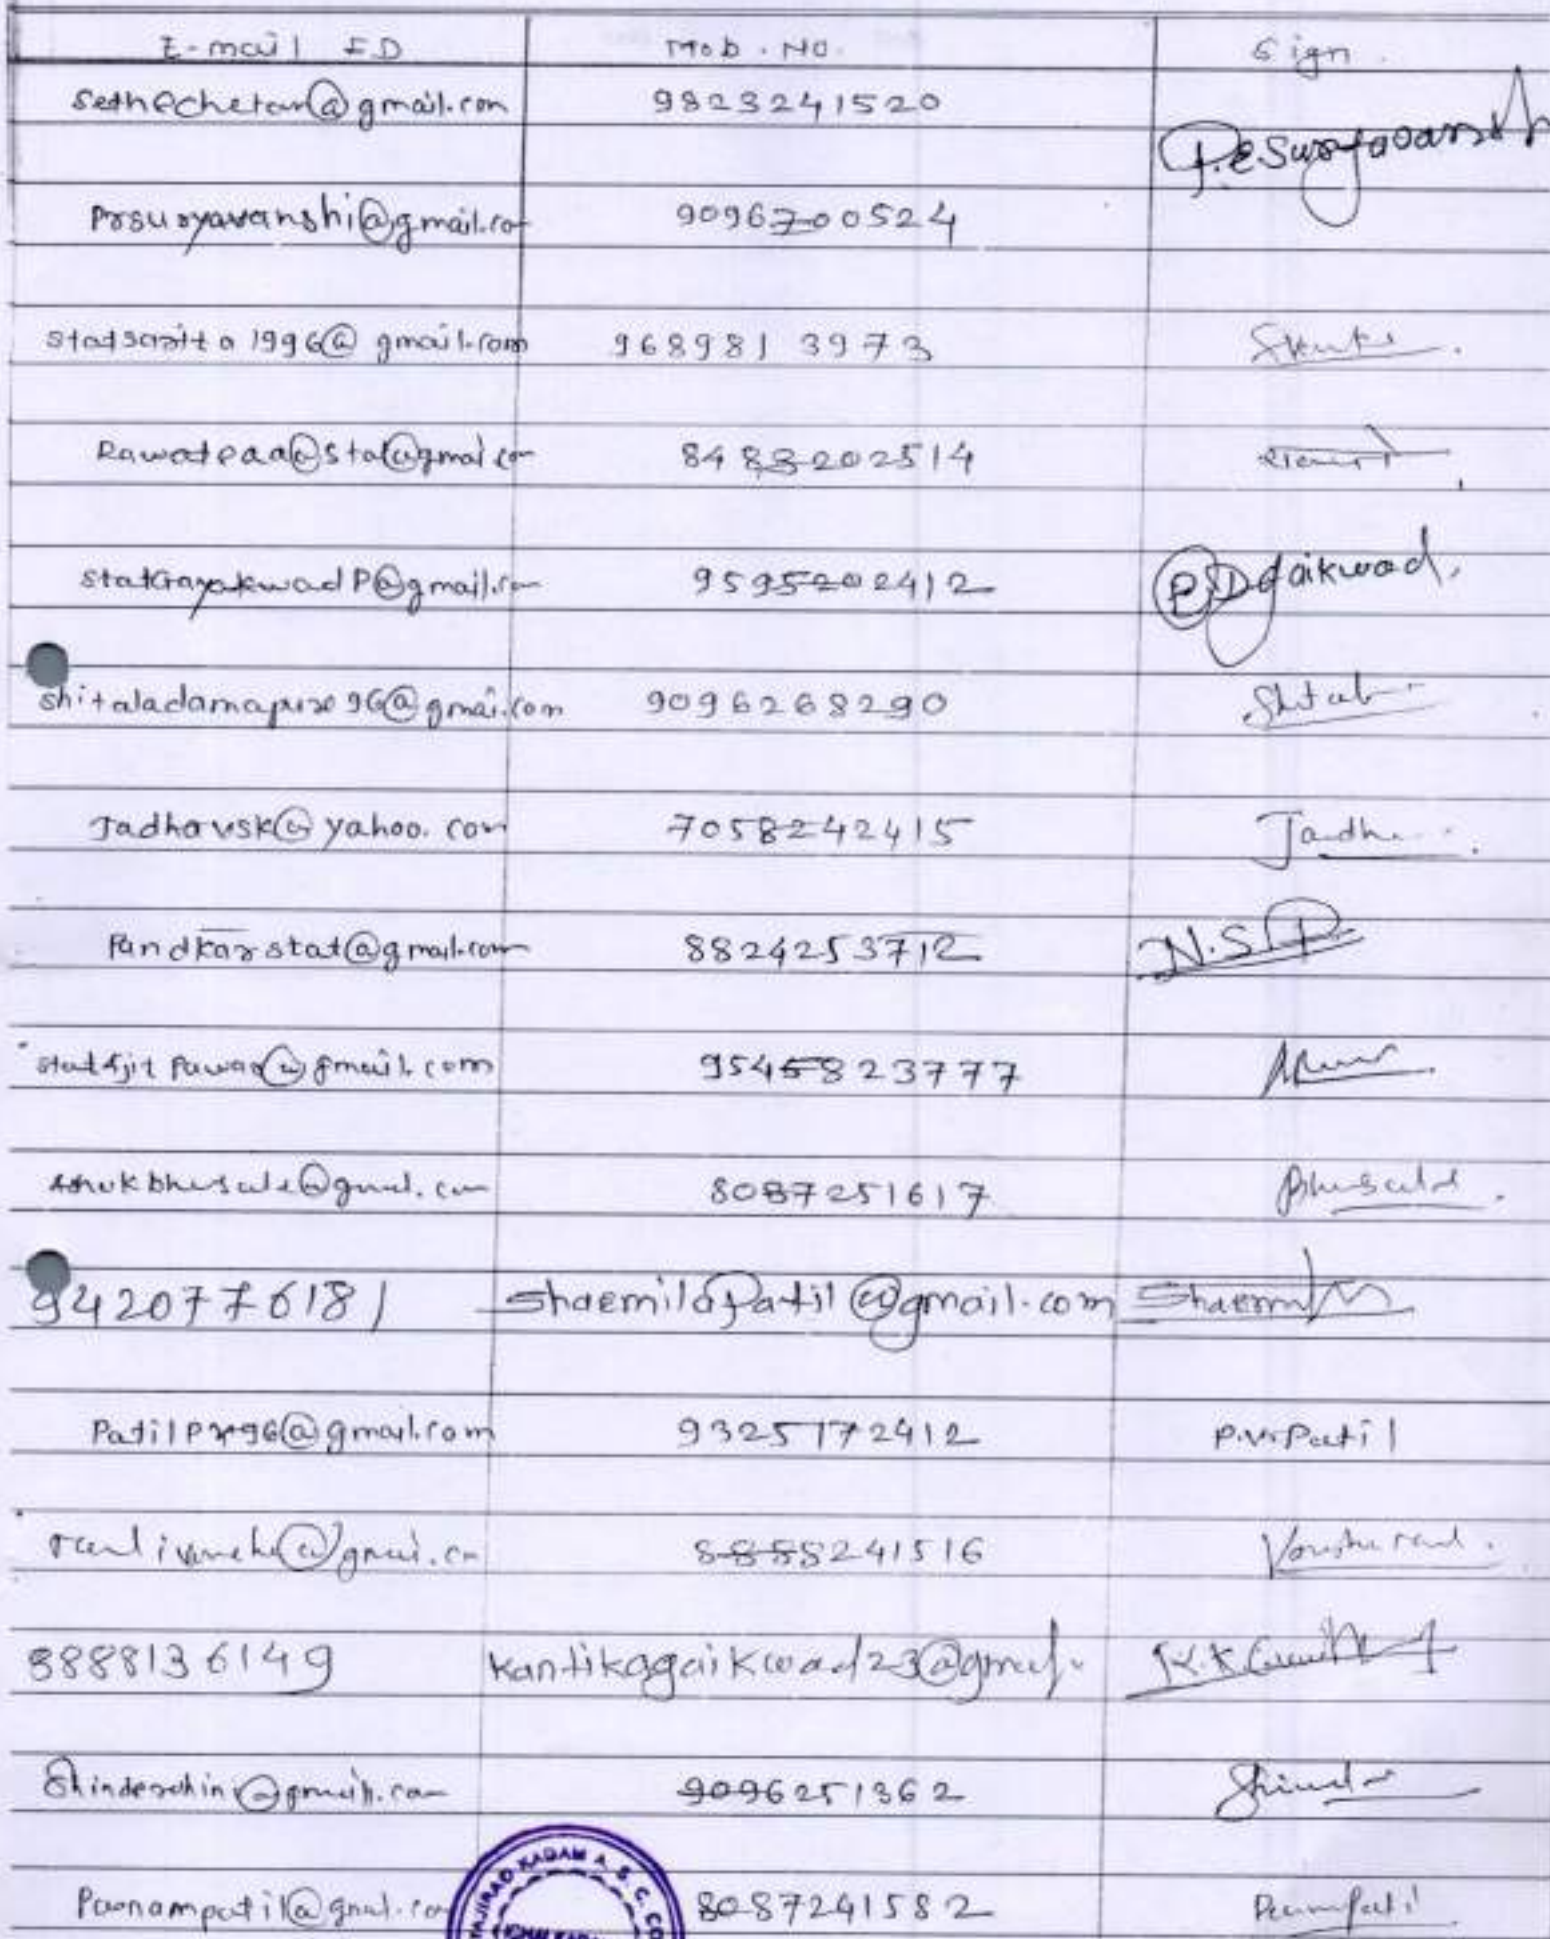 E-mail ID Mob. No. Sign.
SetheChetan@gmail.com 9823241520
P.R Suryavanshi
Prsuryavanshi@gmail.com 9096700524
statsarita1996@gmail.com 9689813973
8483202514
StatGayakwadP@gmail.com 9595202412 P.D Gaikwad.
shitaladamapure96@gmai.com 9096268290 Shital
Jadhavsk@yahoo.com 7058242415 Jadh
Pandkarstat@gmail.com 8824253712 N.S.P.
StatAjitPawar@gmail.com 9545823777
Ashokbhusale@gmail.com 8087251617 Bhusale.
9420776181 ShaemilaPatil@gmail.com
Patilpr96@gmail.com 9325172412 P.V.Patil
8858241516
8888136149 Kantikagaikwad23@gmail.
9096251362 Shinde
Poonampatil@gmail.com 8087241582
KADAM A. S. C. CO